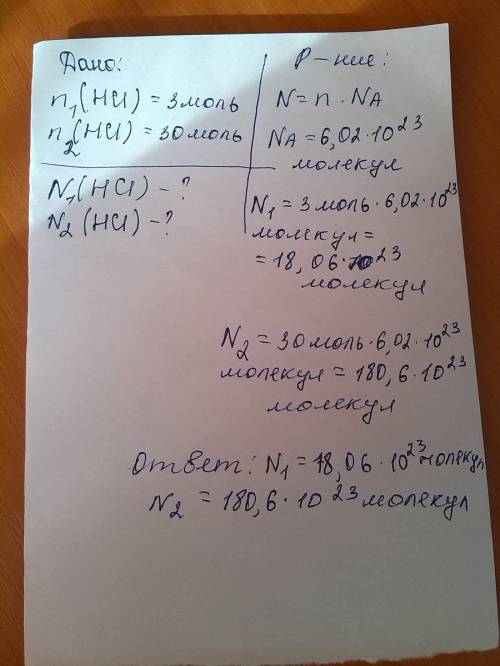 Дано:
n₁(HCl) = 3 моль
n₂(HCl) = 30 моль
N₁(HCl) - ?
N₂(HCl) - ?
Р-ние:
N = n · NA
NA = 6,02 · 10²³
молекул
N₁ = 3 моль · 6,02 · 10²³
молекул =
= 18,06 · 10²³
молекул
N₂ = 30 моль · 6,02 · 10²³
молекул = 180,6 · 10²³
молекул
Ответ: N₁ = 18,06 · 10²³ молекул
N₂ = 180,6 · 10²³ молекул